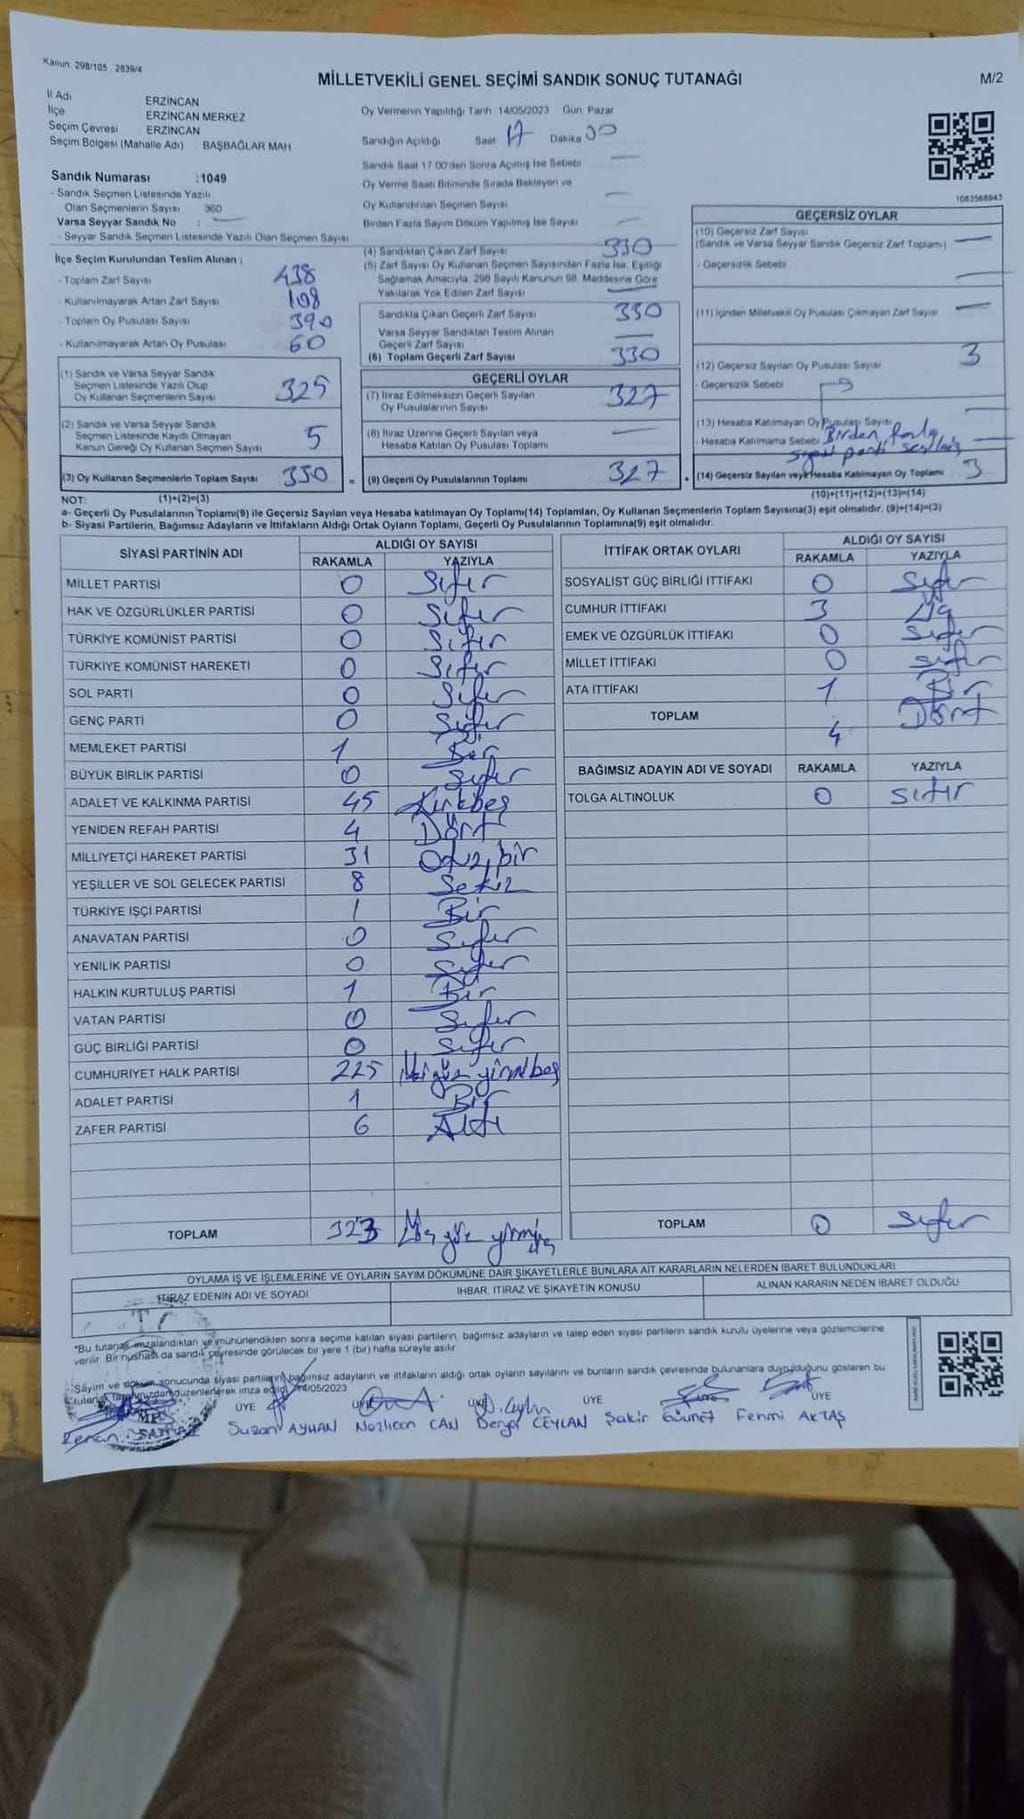 Kanun: 298/105, 2839/4
MİLLETVEKİLİ GENEL SEÇİMİ SANDIK SONUÇ TUTANAĞI
M/2
İl Adı ERZİNCAN
İlçe ERZİNCAN MERKEZ
Seçim Çevresi ERZİNCAN
Seçim Bölgesi (Mahalle Adı) BAŞBAĞLAR MAH
Sandık Numarası :1049
- Sandık Seçmen Listesinde Yazılı
Olan Seçmenlerin Sayısı 360
Varsa Seyyar Sandık No :
- Seyyar Sandık Seçmen Listesinde Yazılı Olan Seçmen Sayısı
İlçe Seçim Kurulundan Teslim Alınan ;
- Toplam Zarf Sayısı 438
- Kullanılmayarak Artan Zarf Sayısı 108
- Toplam Oy Pusulası Sayısı 390
- Kullanılmayarak Artan Oy Pusulası 60
(1) Sandık ve Varsa Seyyar Sandık
Seçmen Listesinde Yazılı Olup
Oy Kullanan Seçmenlerin Sayısı 325
(2) Sandık ve Varsa Seyyar Sandık
Seçmen Listesinde Kayıtlı Olmayan
Kanun Gereği Oy Kullanan Seçmen Sayısı 5
(3) Oy Kullanan Seçmenlerin Toplam Sayısı 330 =
Oy Vermenin Yapıldığı Tarih 14/05/2023 Gün: Pazar
Sandığın Açıldığı Saat 17 Dakika 00
Sandık Saat 17:00'den Sonra Açılmış İse Sebebi
Oy Verme Saati Bitiminde Sırada Bekleyen ve
Oy Kullandırılan Seçmen Sayısı
Birden Fazla Sayım Döküm Yapılmış İse Sayısı
(4) Sandıktan Çıkan Zarf Sayısı 330
(5) Zarf Sayısı Oy Kullanan Seçmen Sayısından Fazla İse, Eşitliği
Sağlamak Amacıyla, 298 Sayılı Kanunun 98. Maddesine Göre
Yakılarak Yok Edilen Zarf Sayısı
Sandıkta Çıkan Geçerli Zarf Sayısı 330
Varsa Seyyar Sandıktan Teslim Alınan
Geçerli Zarf Sayısı
(6) Toplam Geçerli Zarf Sayısı 330
GEÇERLİ OYLAR
(7) İtiraz Edilmeksizin Geçerli Sayılan
Oy Pusulalarının Sayısı 327
(8) İtiraz Üzerine Geçerli Sayılan veya
Hesaba Katılan Oy Pusulası Toplamı
(9) Geçerli Oy Pusulalarının Toplamı 327 +
1083568943
GEÇERSİZ OYLAR
(10) Geçersiz Zarf Sayısı
(Sandık ve Varsa Seyyar Sandık Geçersiz Zarf Toplamı)
- Geçersizlik Sebebi
(11) İçinden Milletvekili Oy Pusulası Çıkmayan Zarf Sayısı
(12) Geçersiz Sayılan Oy Pusulası Sayısı 3
- Geçersizlik Sebebi
(13) Hesaba Katılmayan Oy Pusulası Sayısı
- Hesaba Katılmama Sebebi Birden fazla
siyasi parti
(14) Geçersiz Sayılan veya Hesaba Katılmayan Oy Toplamı 3
NOT: (1)+(2)=(3)
(10)+(11)+(12)+(13)=(14)
a- Geçerli Oy Pusulalarının Toplamı(9) ile Geçersiz Sayılan veya Hesaba katılmayan Oy Toplamı(14) Toplamları, Oy Kullanan Seçmenlerin Toplam Sayısına(3) eşit olmalıdır. (9)+(14)=(3)
b- Siyasi Partilerin, Bağımsız Adayların ve İttifakların Aldığı Ortak Oyların Toplamı, Geçerli Oy Pusulalarının Toplamına(9) eşit olmalıdır.
SİYASİ PARTİNİN ADI ALDIĞI OY SAYISI
RAKAMLA YAZIYLA
MİLLET PARTİSİ 0 Sıfır
HAK VE ÖZGÜRLÜKLER PARTİSİ 0 Sıfır
TÜRKİYE KOMÜNİST PARTİSİ 0 Sıfır
TÜRKİYE KOMÜNİST HAREKETİ 0 Sıfır
SOL PARTİ 0 Sıfır
GENÇ PARTİ 0 Sıfır
MEMLEKET PARTİSİ 1 Bir
BÜYÜK BİRLİK PARTİSİ 0 Sıfır
ADALET VE KALKINMA PARTİSİ 45 Kırkbeş
YENİDEN REFAH PARTİSİ 4 Dört
MİLLİYETÇİ HAREKET PARTİSİ 31 Otuz bir
YEŞİLLER VE SOL GELECEK PARTİSİ 8 Sekiz
TÜRKİYE İŞÇİ PARTİSİ 1 Bir
ANAVATAN PARTİSİ 0 Sıfır
YENİLİK PARTİSİ 0 Sıfır
HALKIN KURTULUŞ PARTİSİ 1 Bir
VATAN PARTİSİ 0 Sıfır
GÜÇ BİRLİĞİ PARTİSİ 0 Sıfır
CUMHURİYET HALK PARTİSİ 225 İkiyüz yirmibeş
ADALET PARTİSİ 1 Bir
ZAFER PARTİSİ 6 Altı
TOPLAM 323
İTTİFAK ORTAK OYLARI ALDIĞI OY SAYISI
RAKAMLA YAZIYLA
SOSYALİST GÜÇ BİRLİĞİ İTTİFAKI 0 Sıfır
CUMHUR İTTİFAKI 3 Üç
EMEK VE ÖZGÜRLÜK İTTİFAKI 0 Sıfır
MİLLET İTTİFAKI 0 Sıfır
ATA İTTİFAKI 1 Bir
TOPLAM 4 Dört
BAĞIMSIZ ADAYIN ADI VE SOYADI RAKAMLA YAZIYLA
TOLGA ALTINOLUK 0 Sıfır
TOPLAM 0 Sıfır
OYLAMA İŞ VE İŞLEMLERİNE VE OYLARIN SAYIM DÖKÜMÜNE DAİR ŞİKAYETLERLE BUNLARA AİT KARARLARIN NELERDEN İBARET BULUNDUKLARI
İTİRAZ EDENİN ADI VE SOYADI İHBAR, İTİRAZ VE ŞİKAYETİN KONUSU ALINAN KARARIN NEDEN İBARET OLDUĞU
T.C.
*Bu tutanak imzalandıktan ve mühürlendikten sonra seçime katılan siyasi partilerin, bağımsız adayların ve talep eden siyasi partilerin sandık kurulu üyelerine veya gözlemcilerine
verilir. Bir nüshası da sandık çevresinde görülecek bir yere 1 (bir) hafta süreyle asılır.
Sayım ve döküm sonucunda siyasi partilerin, bağımsız adayların ve ittifakların aldığı ortak oyların sayılarını ve bunların sandık çevresinde bulunanlara duyurulduğunu gösteren bu
tutanak tarafımızdan düzenlenerek imza edildi. 14/05/2023
ÜYE ÜYE ÜYE ÜYE ÜYE
Suzan AYHAN Nazlıcan CAN CEYLAN Şakir Fehmi AKTAŞ